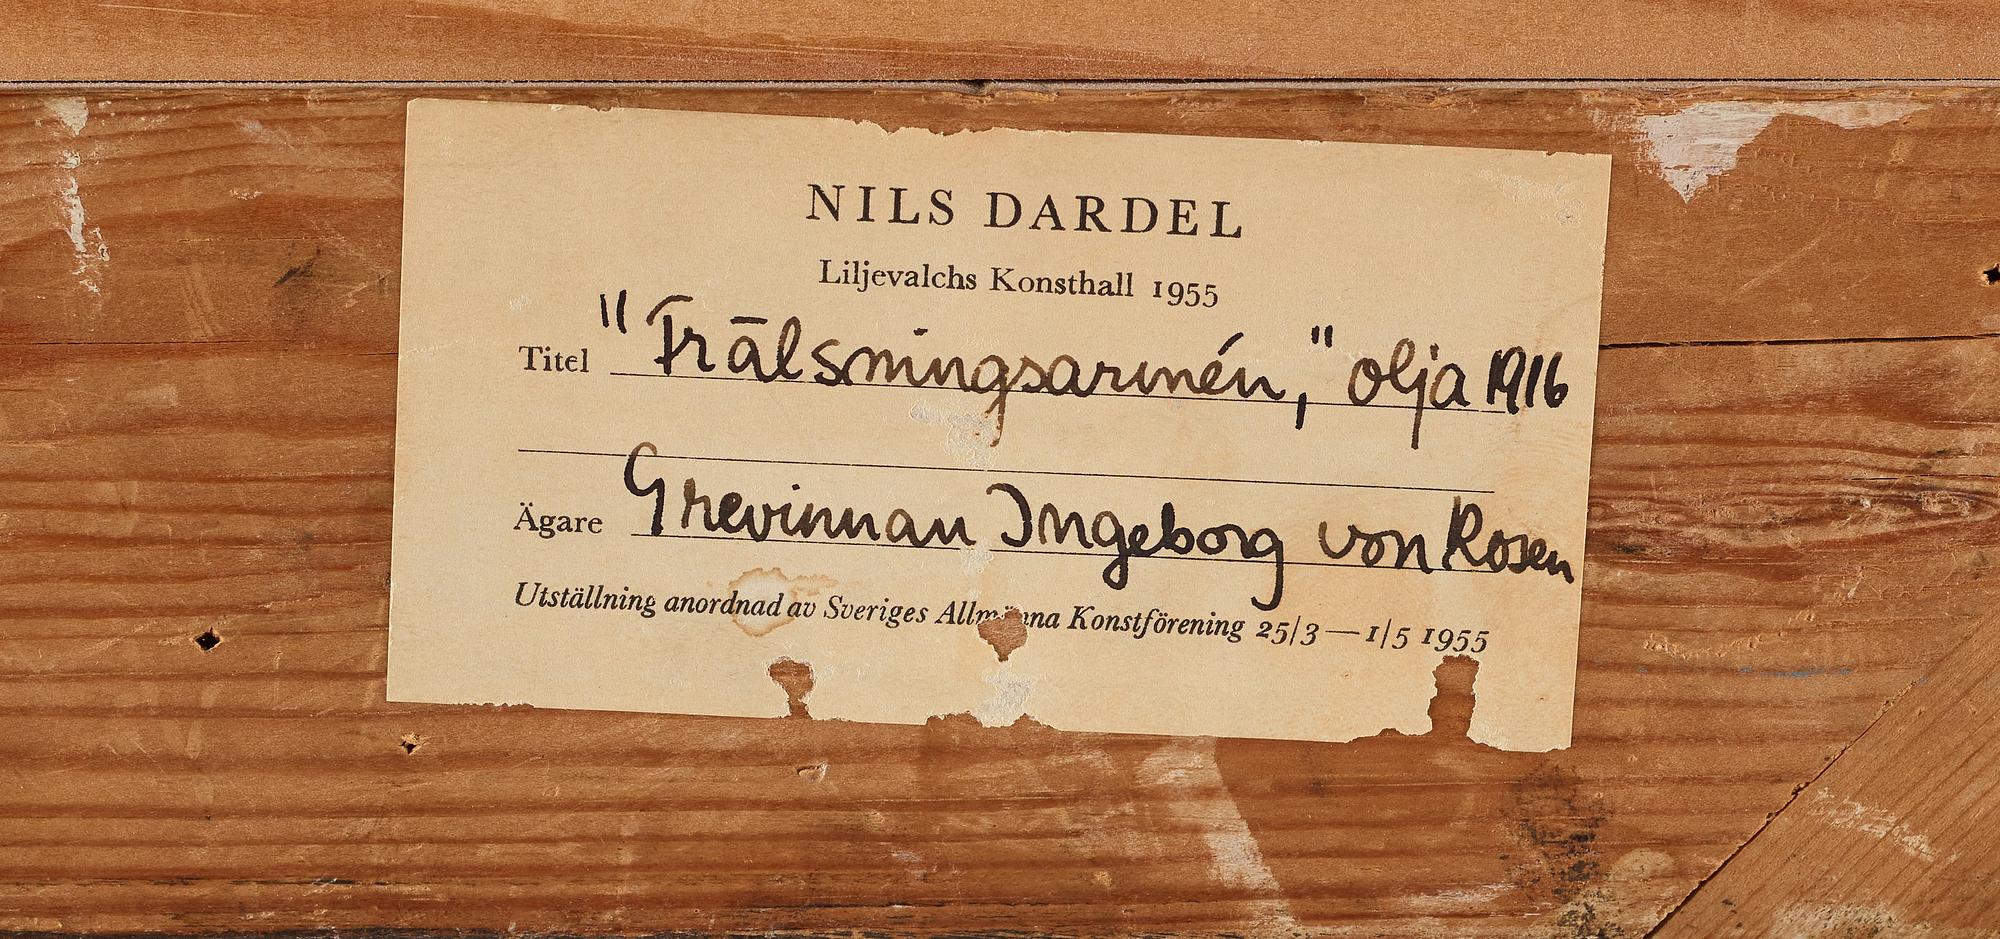 NILS DARDEL
Liljevalchs Konsthall 1955
Titel "Frälsningsarmén," olja 1916
Ägare Grevinnan Ingeborg von Rosen
Utställning anordnad av Sveriges Allmänna Konstförening 25/3—1/5 1955